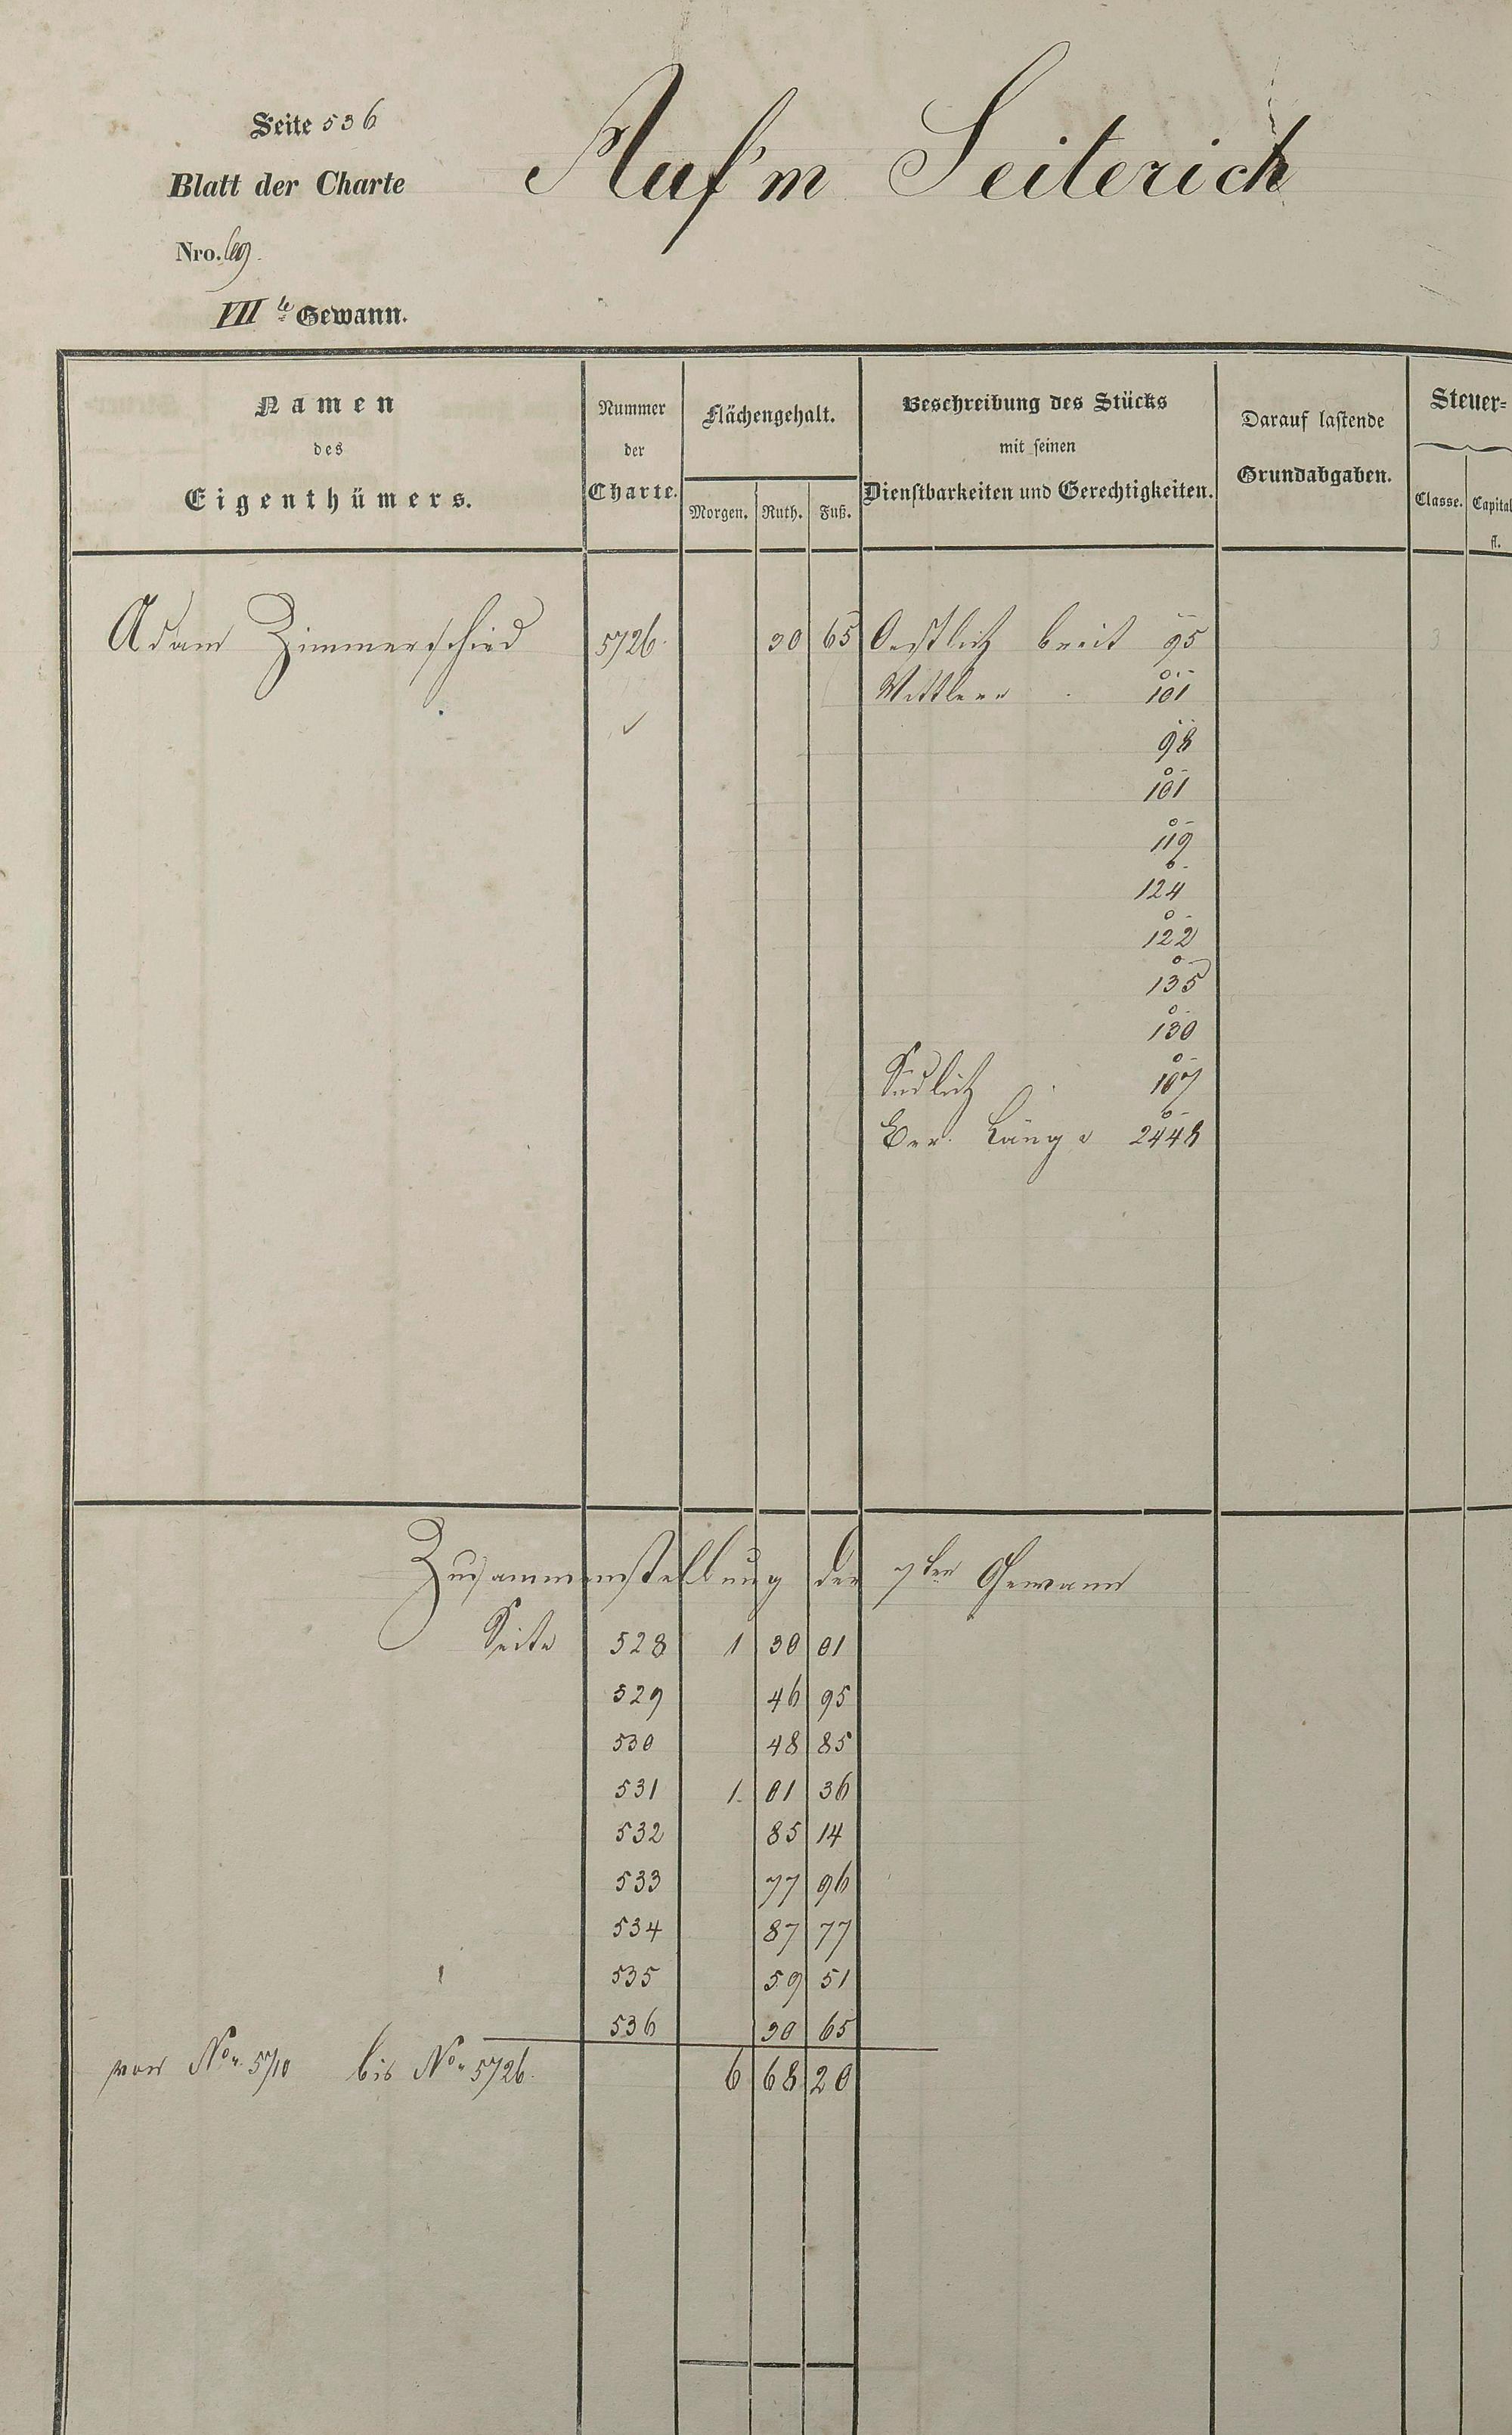 Seite 536
Auf'm Seiterich
Blatt der Charte
Nro. 69.
VII te Gewann.
Namen des Eigenthümers.
Nummer der Charte.
Flächengehalt.
Morgen. Ruth. Fuß.
Beschreibung des Stücks mit seinen Dienstbarkeiten und Gerechtigkeiten.
Darauf lastende Grundabgaben.
Steuer=
Classe. Capital
fl.
Adam Zimmerschied 5726. 30 65 Oestlich breit 95
Mittlere 101
98
101
119
124
122
135
130
Südlich 107
Ber. Länge 2448
Zusammenstellung der 7ten Gewann
Seite 528 1 30 01
529 46 95
530 48 85
531 1. 01 36
532 85 14
533 77 96
534 87 77
535 59 51
536 30 65
von No. 5710 bis No. 5726. 6 68 20